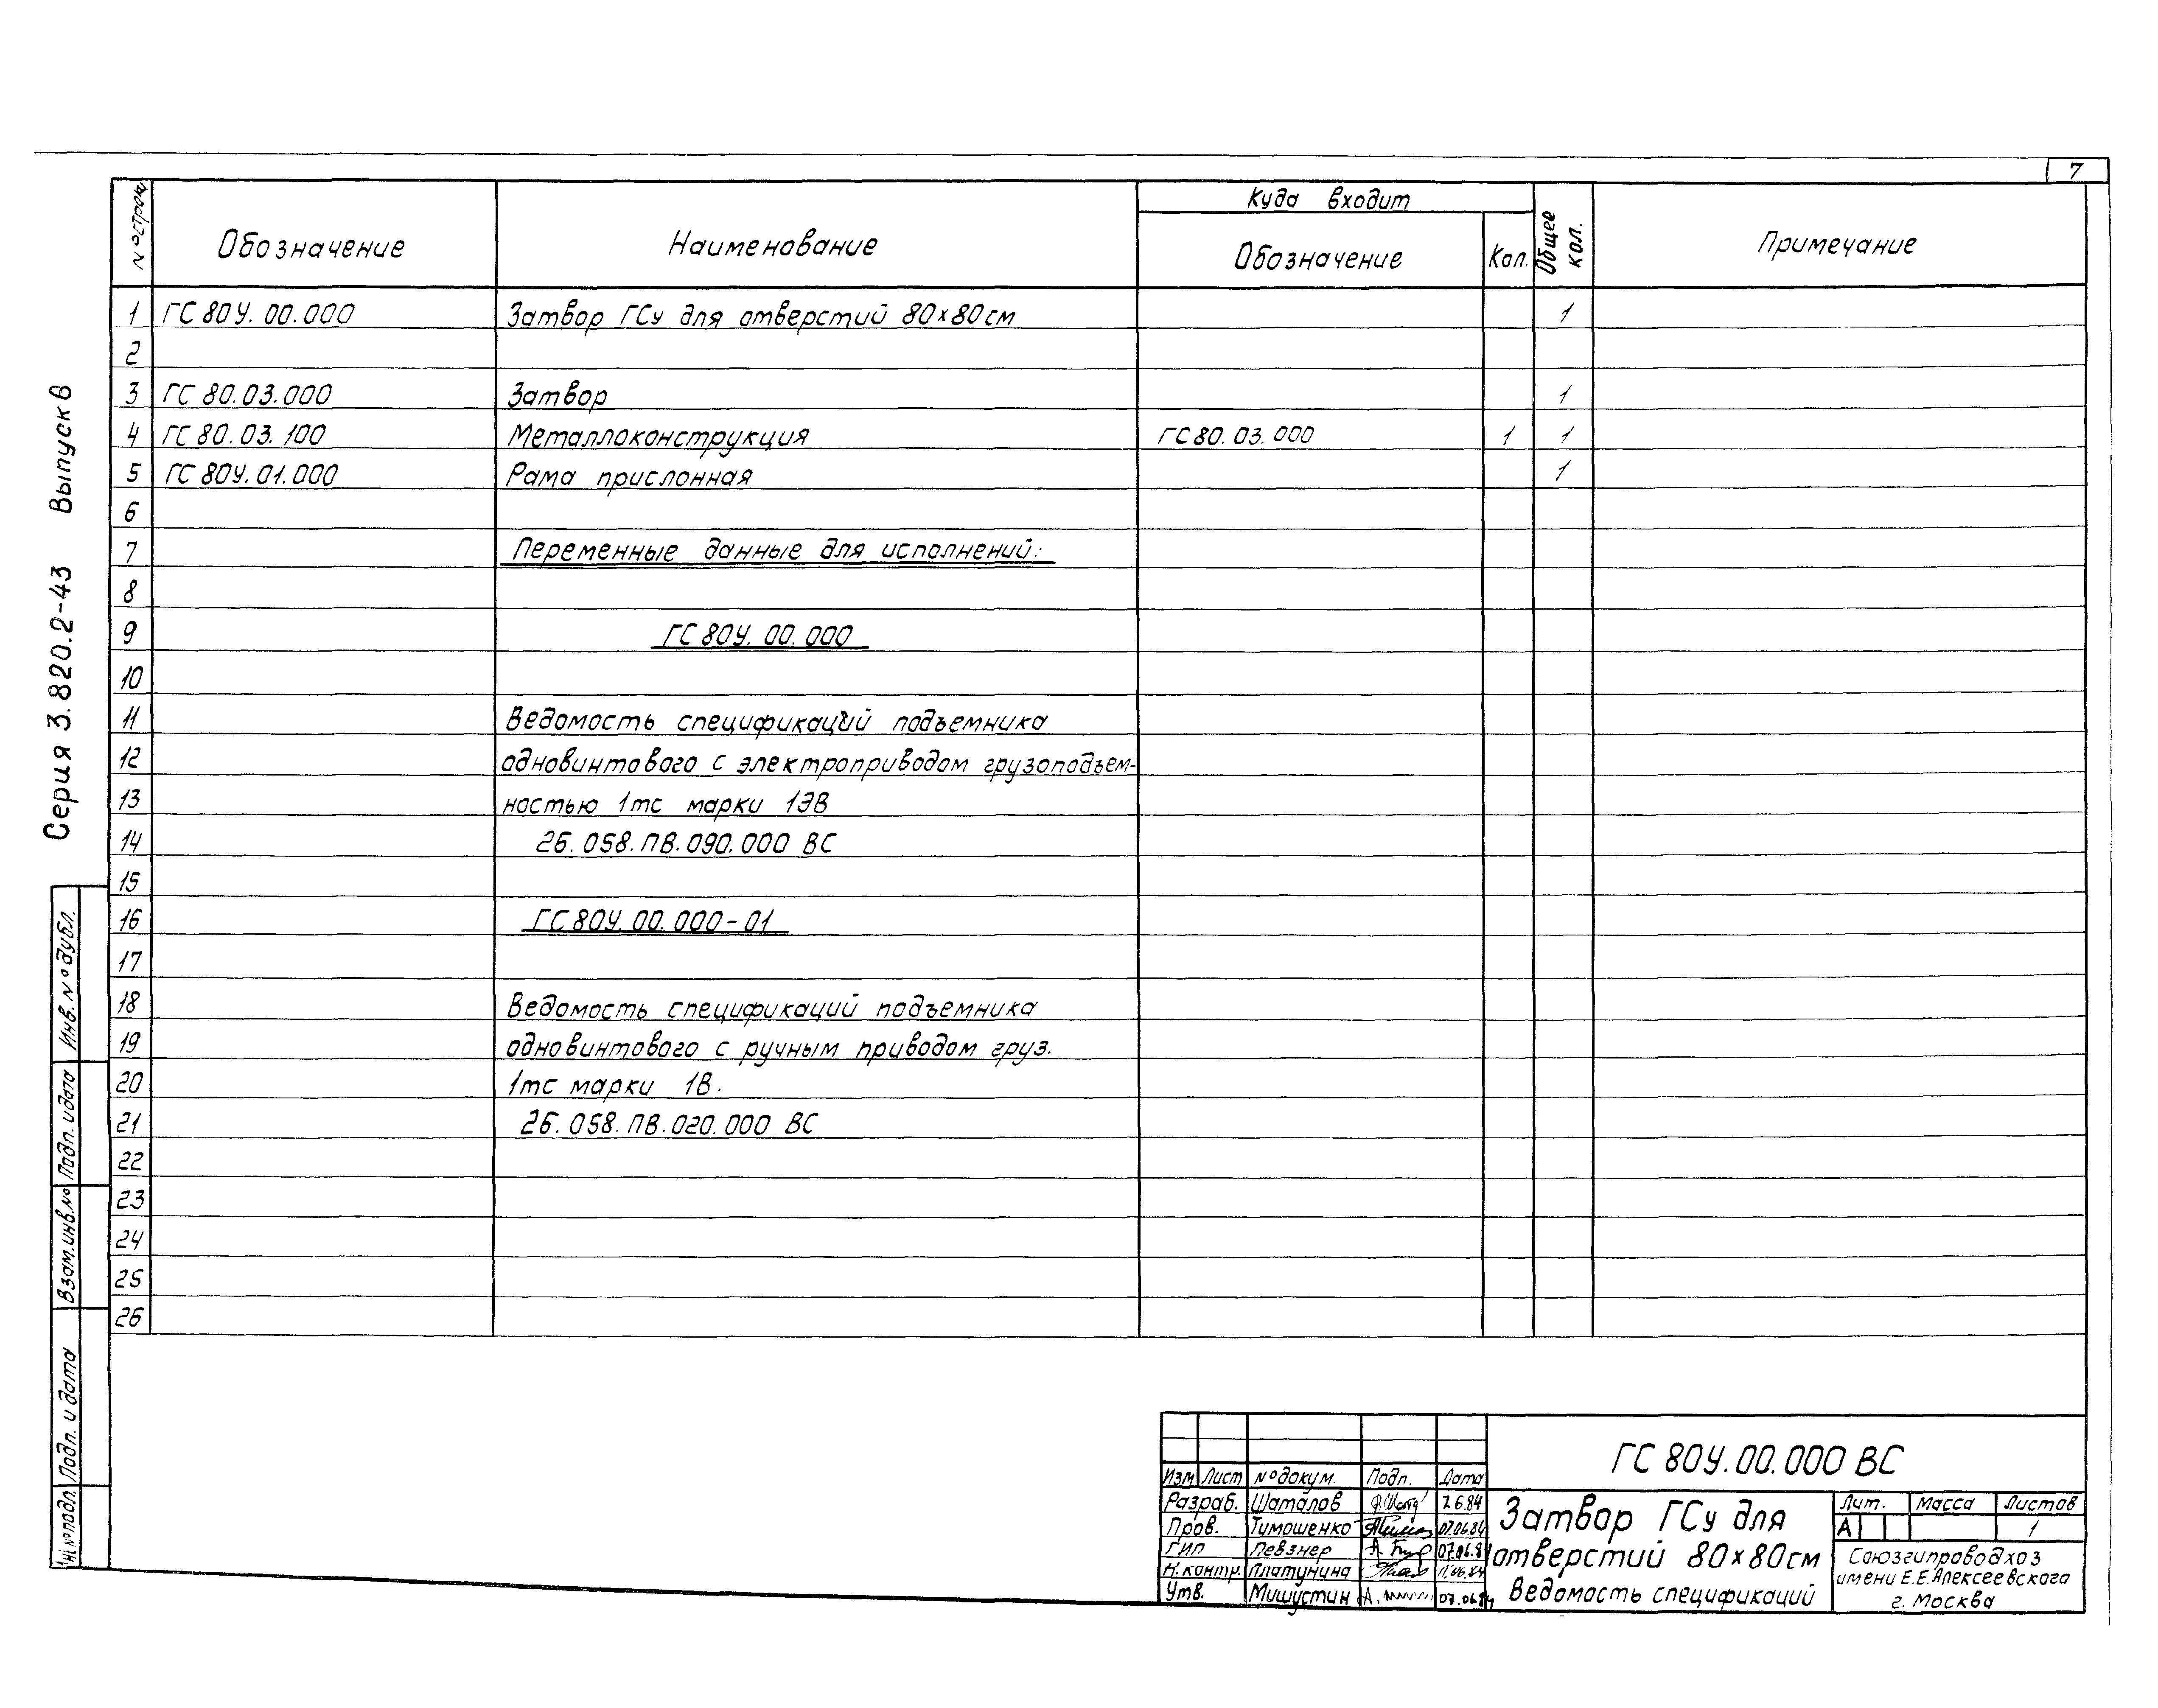 7
Серия 3.820.2-43 Выпуск 8
№ строки
Обозначение
Наименование
Куда входит
Обозначение
Кол.
Общее кол.
Примечание
1 ГС 80У.00.000 Затвор ГСу для отверстий 80х80см 1
2
3 ГС 80.03.000 Затвор 1
4 ГС 80.03.100 Металлоконструкция ГС80.03.000 1 1
5 ГС 80У.01.000 Рама прислонная 1
6
7 Переменные данные для исполнений:
8
9 ГС 80У.00.000
10
11 Ведомость спецификаций подъемника
12 одновинтового с электроприводом грузоподъем-
13 ностью 1тс марки 1ЭВ
14 26.058.ПВ.090.000 ВС
15
16 ГС80У.00.000-01
17
18 Ведомость спецификаций подъемника
19 одновинтового с ручным приводом груз.
20 1тс марки 1В.
21 26.058.ПВ.020.000 ВС
22
23
24
25
26
Инв. № дубл.
Подп. и дата
Взам. инв. №
Подп. и дата
Инв. № подл.
Изм Лист № докум. Подп. Дата
Разраб. Шаталов 7.6.84
Пров. Тимошенко 07.06.84
ГИП Левзнер 07.06.84
Н. контр. Платунина 11.06.84
Утв. Мишустин 07.06.84
ГС 80У.00.000 ВС
Затвор ГСу для
отверстий 80х80см
Ведомость спецификаций
Лит. Масса Листов
А 1
Союзгипроводхоз
имени Е.Е.Алексеевского
г. Москва